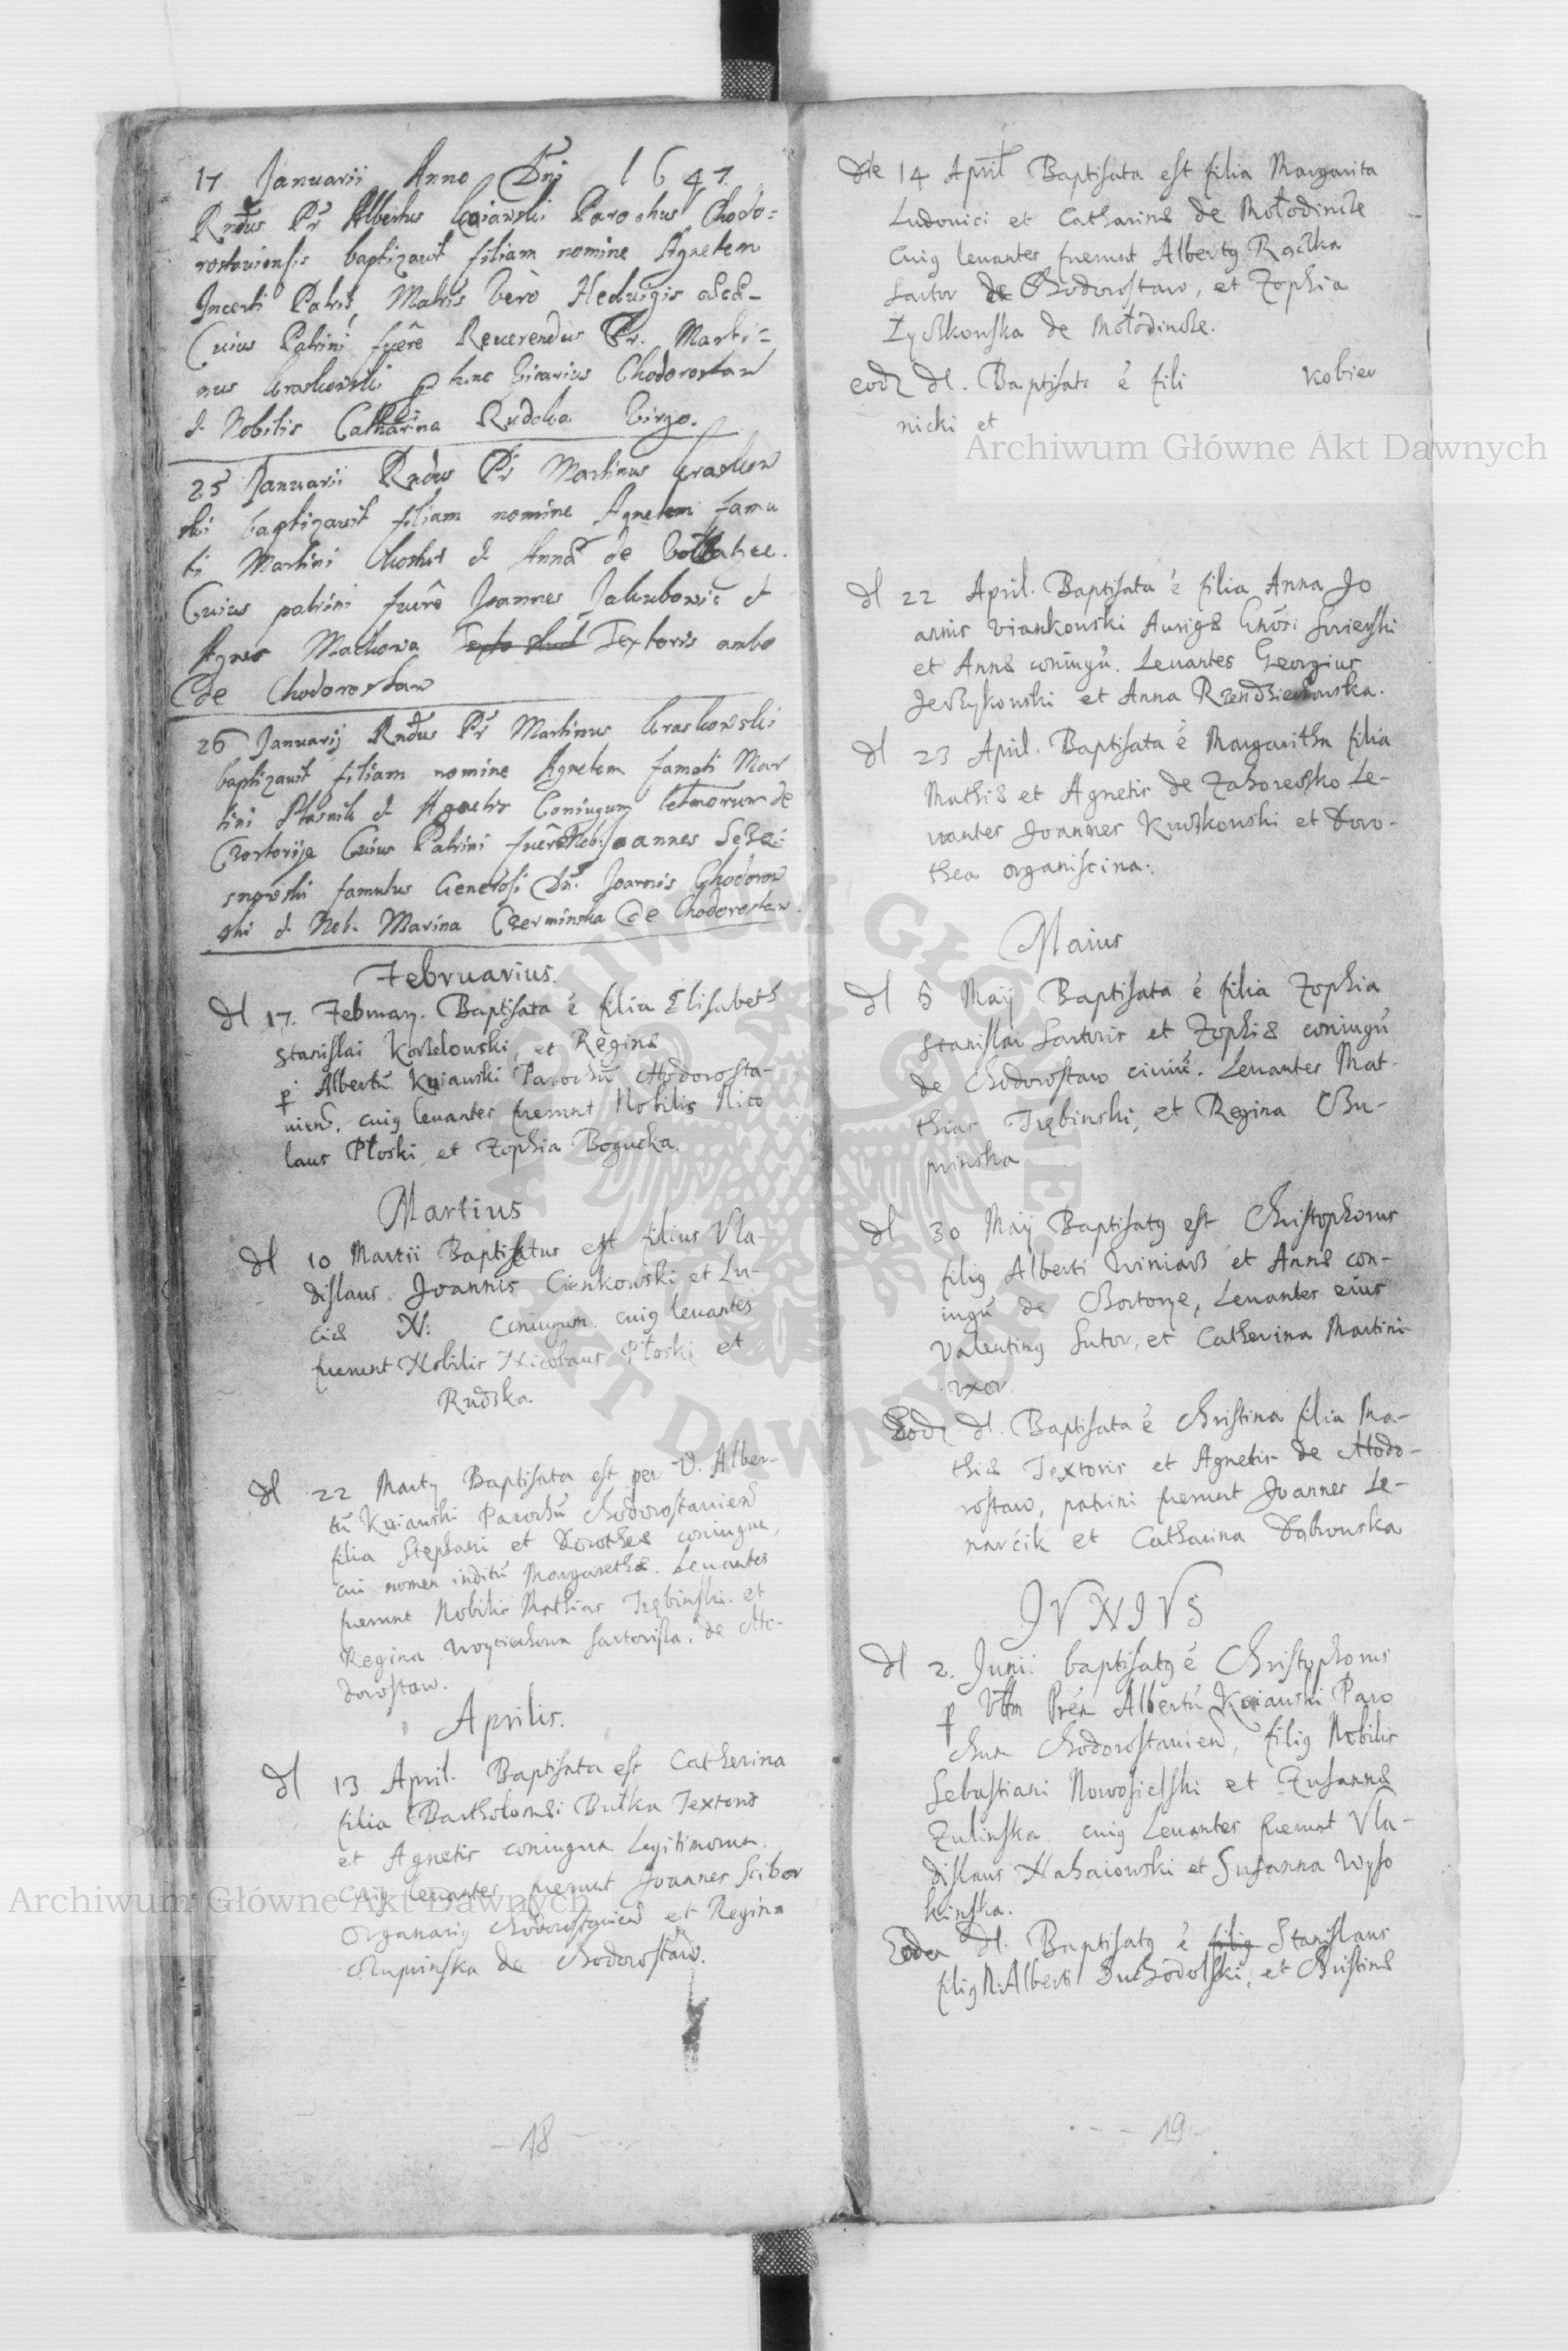 17 Januarii Anno Dni 1647.
Rndus Pr Albertus Kuiawski Parochus Chodo=
rostaviensis baptizavit filiam nomine Agnetem
Incerti Patris, Matris verò Hedvigis
Cuius Patrini fuêre Reverendus Pr. Marti=
nus Kraskowski p hinc Vicarius Chodorostaw
et Nobilis Catharina Rudcka Virgo.
25 Januarii Rndus Pr Martinus Kraskow
ski baptizavit filiam nomine Agnetem fama
ti Martini et Annæ de
Cuius patrini fuêre Joannes Jakubowic et
Agnes Mackowa Textoris ambo
de Chodorostaw
26 Januarij Rndus Pr Martinus Kraskowski
baptizavit filiam nomine Agnetem famati Mar
tini Ptasnik et Agnetis Coniugum de
Czortorije Cuius Patrini fuêre Nob: Joannes
famulus Generosi Dn. Joannis Chodorow
ski et Nob. Marina Czerminska de Chodorostaw.
Februarius.
Dl 17. February. Baptisata é filia Elisabeth
Stanislai Kozdlowski, et Reginæ
p Albertũ Kuiawski Parochũ Chodorosta-
uien. cuiq leuantes fuerunt Nobilis Nico
laus Płoski, et Zophia Bogucka.
Martius
Dl 10 Martii Baptisatus est filius Vla-
dislaus Joannis Cienkowski et Lu-
ciæ N: Coniugum. cuiq leuantes
fuerunt Nobilis Nicolaus Płoski et
Rudska.
Dl 22 Marty Baptisata est per V. Alber-
tũ Kuiauski Parochũ Chodorostauien
filia Stephani et Dorotheæ coniugum,
cui nomen inditũ Margarethæ. Leuantes
fuerunt Nobilis Mathias Trębinski. et
Regina Woyciechowa Sartoriska, de Cho-
dorostaw.
Aprilis.
Dl 13 April. Baptisata est Catherina
filia Bartholomæi Bułka Textoris
et Agnetis coniugum Legitimorum.
Cuiq leuantes fuerunt Joannes Scibor
Organariq Chodorostauien et Regina
Chuprinska de Chodorostaw.
18
Die 14 April Baptisata est filia Margarita
Ludovici et Catharinæ de Mołodincze
Cuiq leuantes fuerunt Albertq Rączka
Sartor de Chodorostaw, et Zophia
Zyczkowska de Mołodincze.
eodz Dl. Baptisata é fili Kobiev
nicki et
Dl 22 April. Baptisata é filia Anna Jo
annis Viankouski Aurigæ
et Annæ coniugũ. Leuantes Georgius
Jerzykouski et Anna Rzendziechouska.
Dl 23 April. Baptisata é Margaritha filia
Mathiæ et Agnetis de Zahoresko Le-
vantes Joannes Kuczkouski et Doro-
thea organiscina.
Maius
Dl 5 Maij Baptisata é filia Zophia
Stanislai Sartoris et Zophiæ coniugũ
de Chodorostaw ciuiũ. Leuantes Mat-
thias Trębinski, et Regina Chu-
prinska
Dl 30 Maij Baptisatq est Christophorus
filiq Alberti Winiarz et Annæ con-
iugũ de Czortorye, Leuantes eius
Valentinq Sutor, et Catherina Martini
vxor.
Eodz dl. Baptisata é Christina filia Ma-
thiæ Textoris et Agnetis de Chodo-
rostaw, patrini fuerunt Joannes Le-
narcik et Catharina Dąbrouska
JVNIVS
Dl 2. Juni: baptisatq é Christophorus
p Vm Prem Albertũ Kuiauski Paro
chum Chodorostauien, filiq Nobilis
Sebastiani Nowosielski et Zusannæ
Zulinska. cuiq Leuantes fuerunt Vla-
dislaus Nahaiowski et Susanna Wyso
kinska.
Eodem dl. Baptisatq é filiq Stanislaus
filiq N. Alberti Suchodolski, et Christinæ
19
Archiwum Główne Akt Dawnych
Archiwum Główne Akt Dawnych
ARCHIWUM GŁÓWNE AKT DAWNYCH